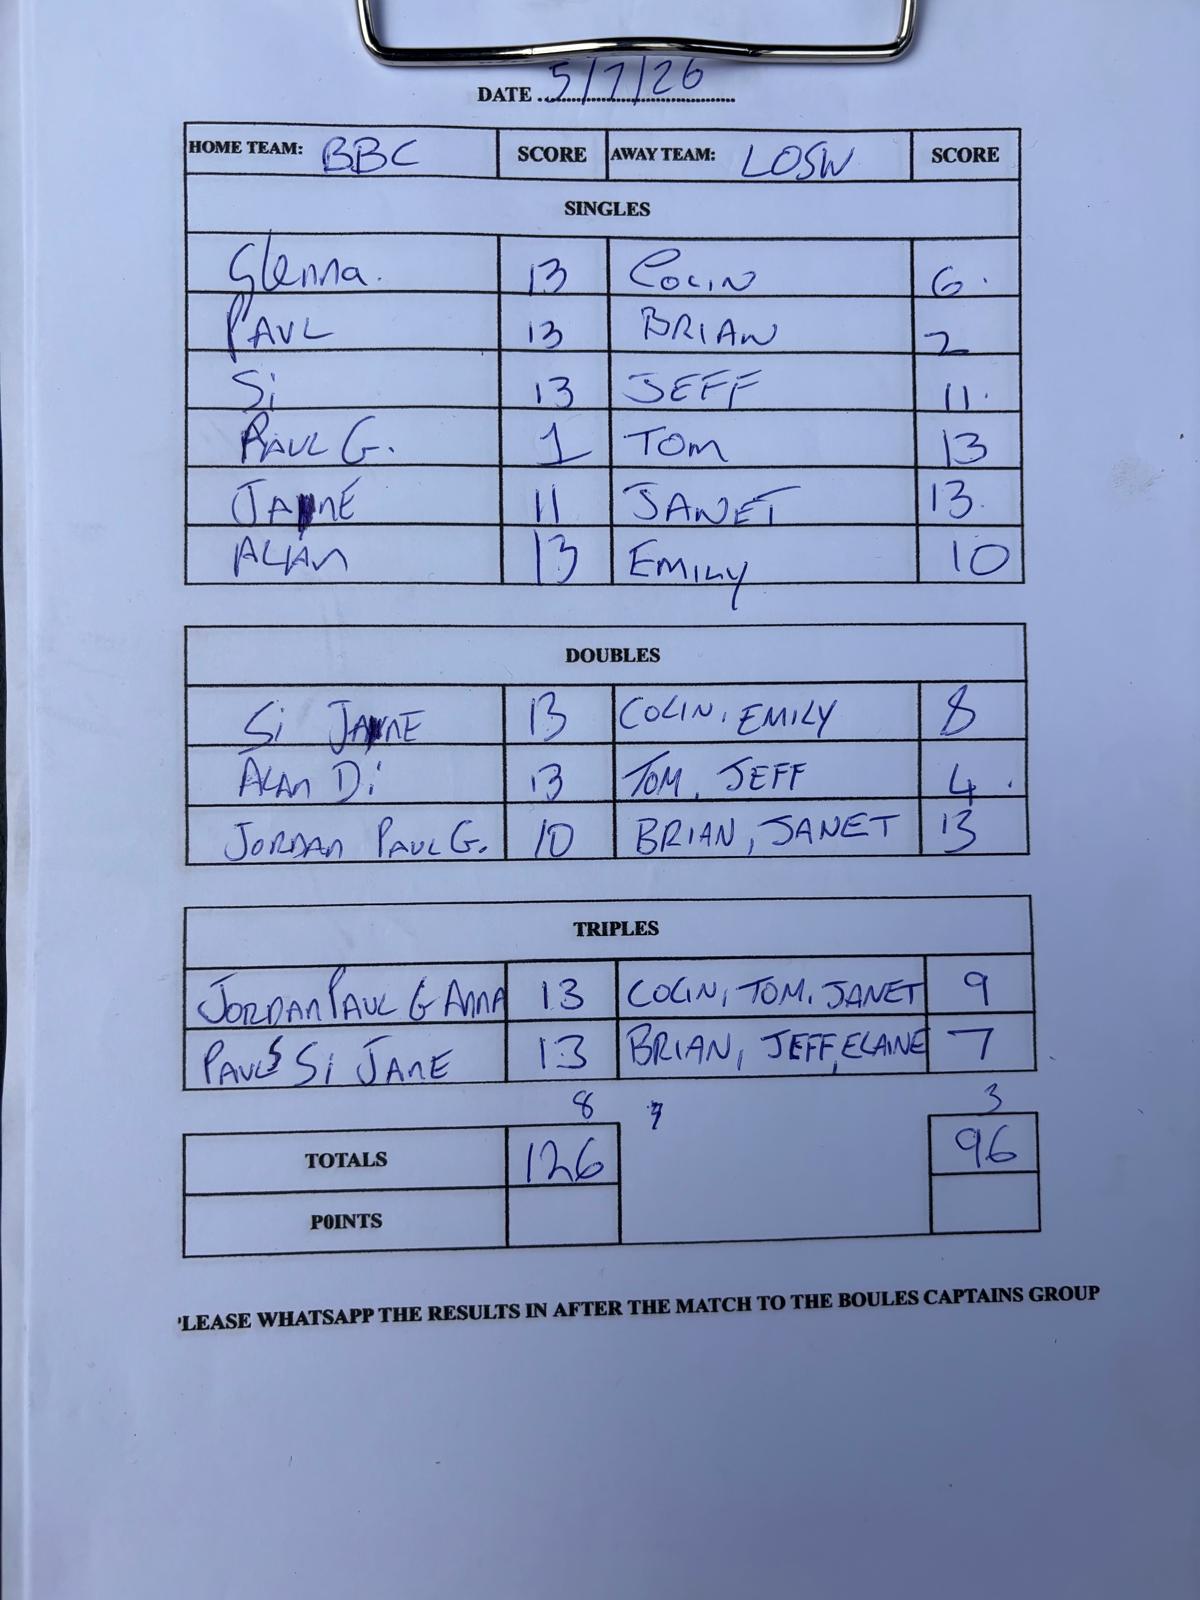 DATE 5/7/26
HOME TEAM: BBC SCORE AWAY TEAM: LOSW SCORE
SINGLES
Glenna. 13 COLIN 6.
PAUL 13 BRIAN 2
Si 13 JEFF 11.
PAUL G. 1 TOM 13
JANE 11 JANET 13.
ALAN 13 EMILY 10
DOUBLES
Si JANE 13 COLIN, EMILY 8
ALAN Di 13 TOM, JEFF 4.
JORDAN PAUL G. 10 BRIAN, JANET 13
TRIPLES
JORDAN PAUL G ANNA 13 COLIN, TOM, JANET 9
PAUL S Si JANE 13 BRIAN, JEFF, ELAINE 7
8 3
TOTALS 126 96
P0INTS
LEASE WHATSAPP THE RESULTS IN AFTER THE MATCH TO THE BOULES CAPTAINS GROUP